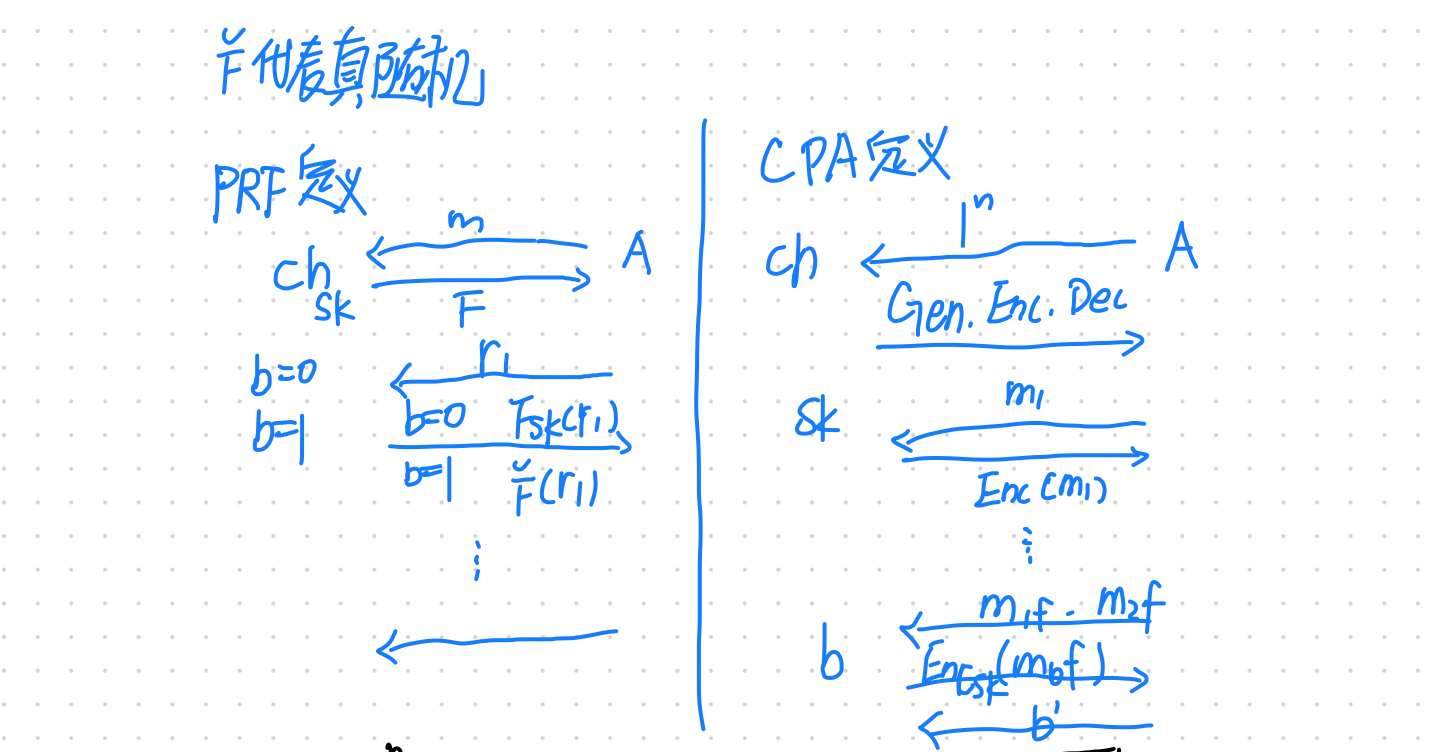 F̌代表真随机
PRF定义
m
ch
A
sk
F
r₁
b=0
b=0 Fsk(r₁)
b=1
b=1 F̌(r₁)
⋮
CPA定义
1ⁿ
ch
A
Gen. Enc. Dec
m₁
sk
Enc(m₁)
⋮
m₁f . m₂f
b
Encsk(mbf)
b'